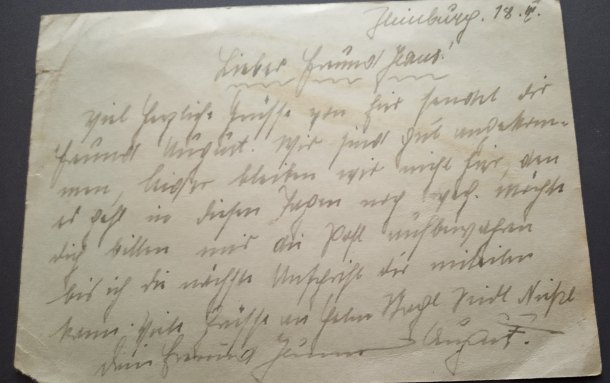 18. IV.
Lieber Freund Hans!
Viel herzliche Grüsse von hier sendet dir
Freund August. Wir sind gut angekom-
men, leider bleiben wir nicht hier, den
es geht in diesen Tagen noch weg. Möchte
dich bitten mir die Post aufbewaren
bis ich die nächste Anschrift dir mitteilen
kann. Viele Grüsse an
Dein Freund August.